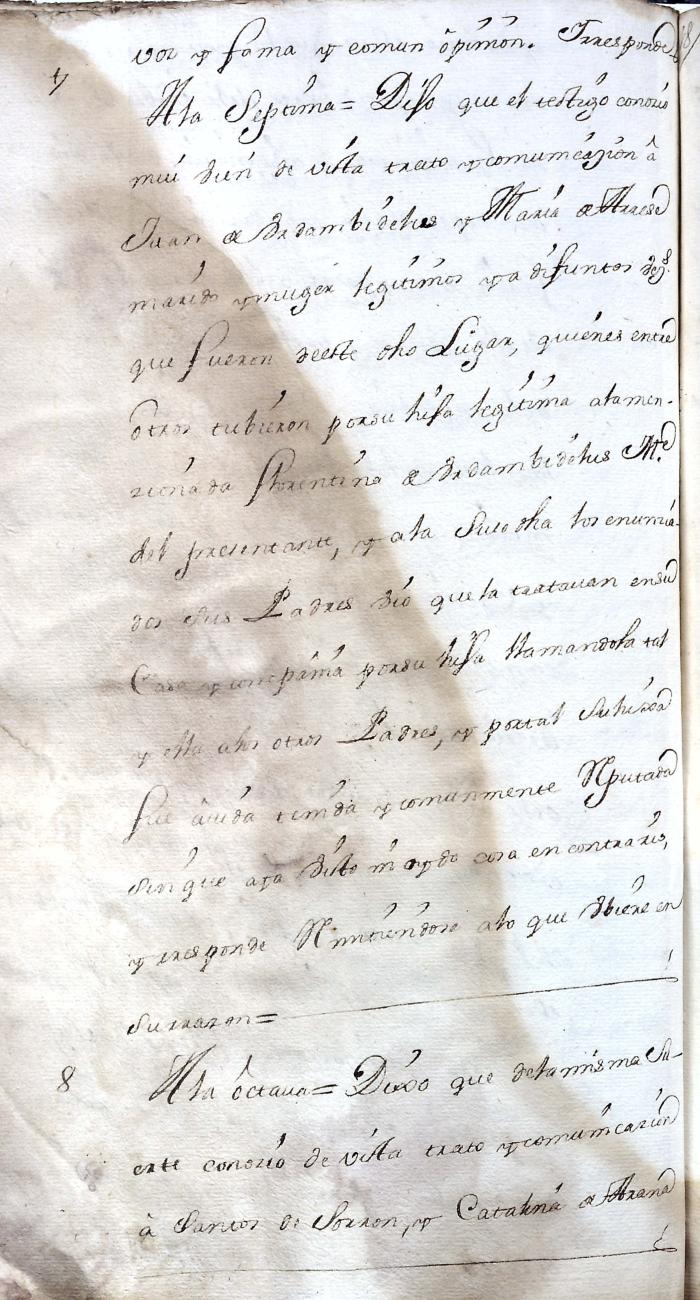 voz y fama y comun ôpinion. Yrresponde
7
A la Septima = Dijo que el testigo conocio
mui bien de vista trato y comunicazion â
Juan de Urdambidelus y Maria de
marido y muger legitimos ya difuntos
que fueron de este dho Lugar, quienes entre
otros tubieron por su hija legitima a la men-
zionada Florentina de Urdambidelus M.e
del presentante, y a la Susodha los enunzia-
dos sus Padres vio que la tratavan en su
Casa y compañia por su hija llamandola tal
y ella a los otros Padres, y por tal Su hija
fue âvida tenida y comunmente Reputada
sin que aya visto ni oydo cosa en contrario,
y responde Remitiendose a lo que diere en
su razon =
8
A la ôctava = Dixo que de la misma Su-
erte conozio de vista trato y comunicazion
â Santos de Sorron, y Catalina de Arana